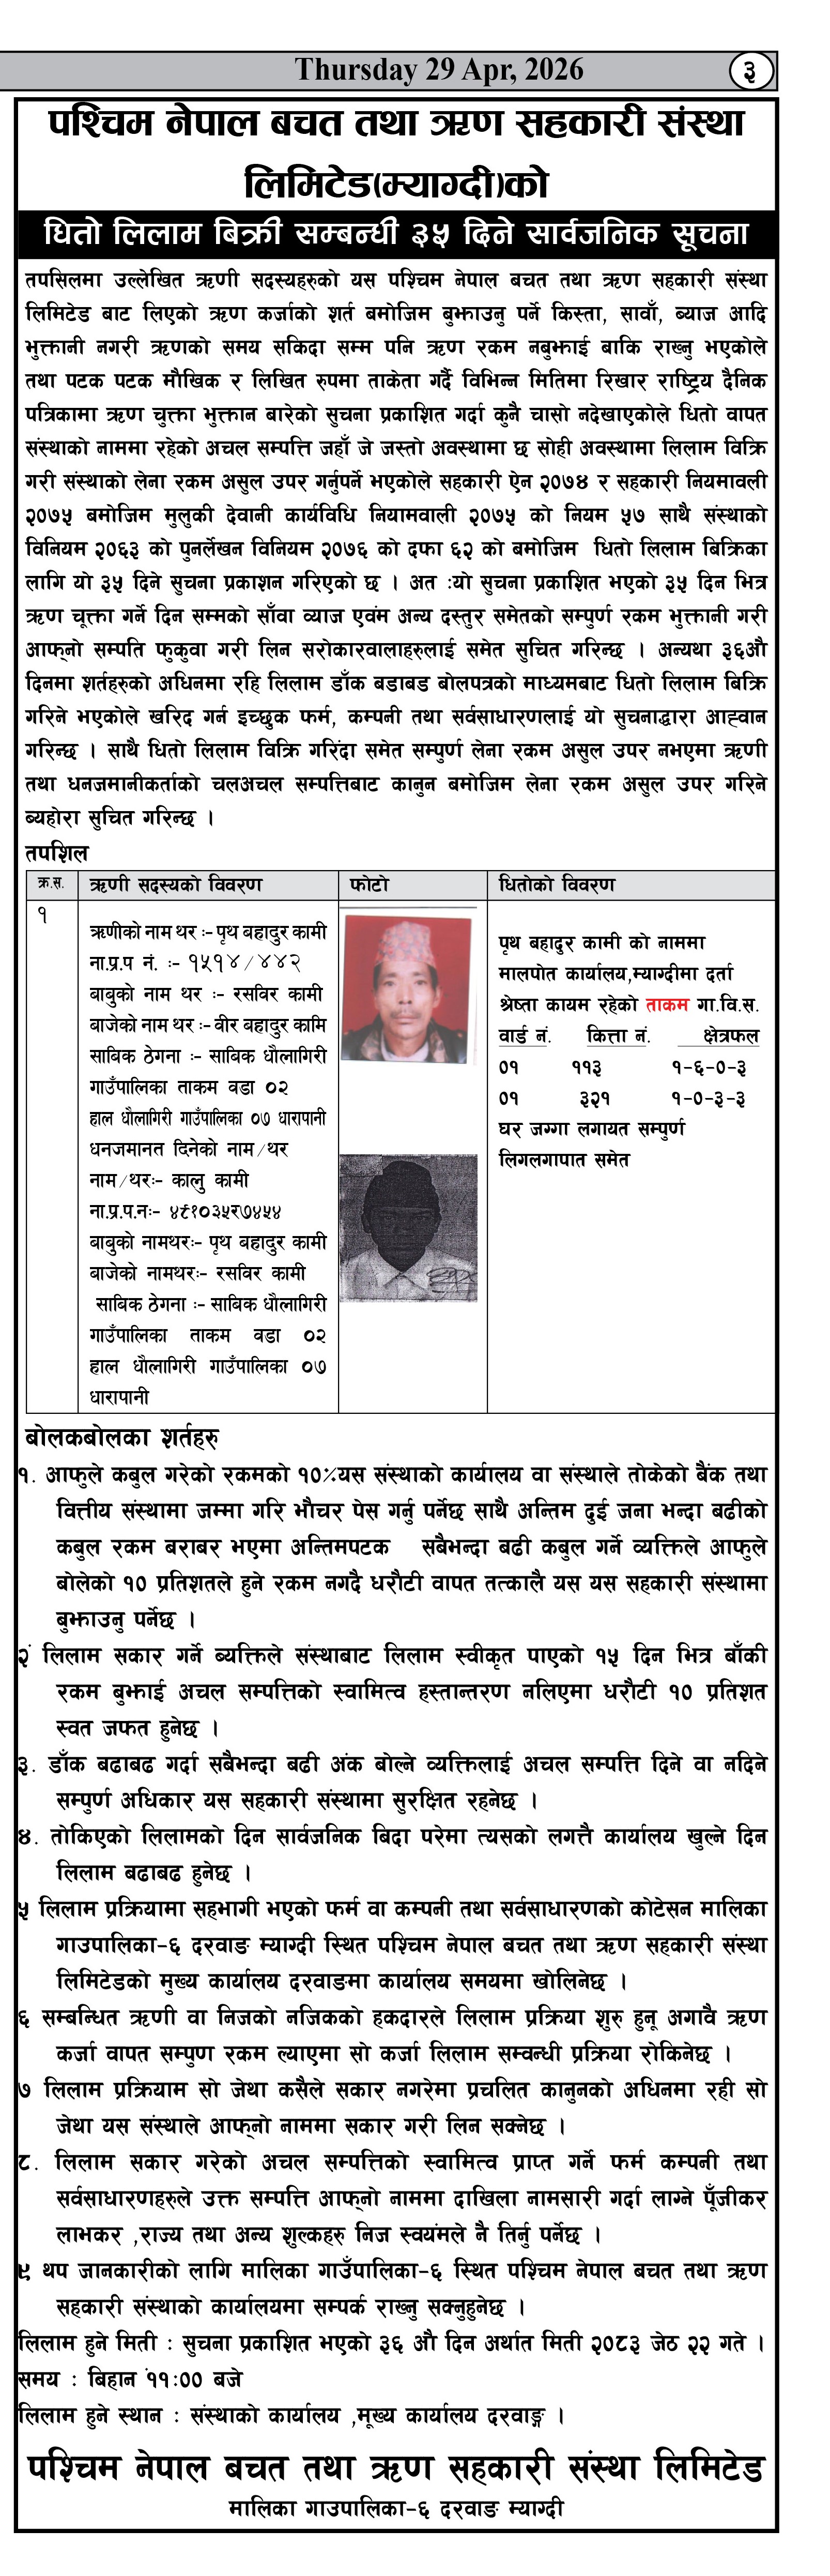 Thursday 29 Apr, 2026
३
पश्चिम नेपाल बचत तथा ऋण सहकारी संस्था
लिमिटेड(म्याग्दी)को
धितो लिलाम बिक्री सम्बन्धी ३५ दिने सार्वजनिक सूचना
तपसिलमा उल्लेखित ऋणी सदस्यहरुको यस पश्चिम नेपाल बचत तथा ऋण सहकारी संस्था
लिमिटेड बाट लिएको ऋण कर्जाको शर्त बमोजिम बुझाउनु पर्ने किस्ता, सावाँ, ब्याज आदि
भुक्तानी नगरी ऋणको समय सकिदा सम्म पनि ऋण रकम नबुझाई बाकि राख्नु भएकोले
तथा पटक पटक मौखिक र लिखित रुपमा ताकेता गर्दै विभिन्न मितिमा रिखार राष्ट्रिय दैनिक
पत्रिकामा ऋण चुक्ता भुक्तान बारेको सुचना प्रकाशित गर्दा कुनै चासो नदेखाएकोले धितो वापत
संस्थाको नाममा रहेको अचल सम्पत्ति जहाँ जे जस्तो अवस्थामा छ सोही अवस्थामा लिलाम विक्रि
गरी संस्थाको लेना रकम असुल उपर गर्नुपर्ने भएकोले सहकारी ऐन २०७४ र सहकारी नियमावली
२०७५ बमोजिम मुलुकी देवानी कार्यविधि नियामवाली २०७५ को नियम ५७ साथै संस्थाको
विनियम २०६३ को पुनर्लेखन विनियम २०७६ को दफा ६२ को बमोजिम धितो लिलाम बिक्रिका
लागि यो ३५ दिने सुचना प्रकाशन गरिएको छ । अत :यो सुचना प्रकाशित भएको ३५ दिन भित्र
ऋण चूक्ता गर्ने दिन सम्मको साँवा व्याज एवंम अन्य दस्तुर समेतको सम्पुर्ण रकम भुक्तानी गरी
आफ्नो सम्पति फुकुवा गरी लिन सरोकारवालाहरुलाई समेत सुचित गरिन्छ । अन्यथा ३६औ
दिनमा शर्तहरुको अधिनमा रहि लिलाम डाँक बडाबड बोलपत्रको माध्यमबाट धितो लिलाम बिक्रि
गरिने भएकोले खरिद गर्न इच्छुक फर्म, कम्पनी तथा सर्वसाधारणलाई यो सुचनाद्धारा आह्वान
गरिन्छ । साथै धितो लिलाम विक्रि गरिंदा समेत सम्पुर्ण लेना रकम असुल उपर नभएमा ऋणी
तथा धनजमानीकर्ताको चलअचल सम्पत्तिबाट कानुन बमोजिम लेना रकम असुल उपर गरिने
ब्यहोरा सुचित गरिन्छ ।
तपशिल
क्र.स. ऋणी सदस्यको विवरण फोटो धितोको विवरण
१
ऋणीको नाम थर :- पृथ बहादुर कामी
ना.प्र.प नं. :- १५१४/४४२
बाबुको नाम थर :- रसविर कामी
बाजेको नाम थर :- वीर बहादुर कामि
साबिक ठेगना :- साबिक धौलागिरी
गाउँपालिका ताकम वडा ०२
हाल धौलागिरी गाउँपालिका ०७ धारापानी
धनजमानत दिनेको नाम/थर
नाम/थरः- कालु कामी
ना.प्र.प.नः- ४६१०३५र७४५४
बाबुको नामथरः- पृथ बहादुर कामी
बाजेको नामथरः- रसविर कामी
साबिक ठेगना :- साबिक धौलागिरी
गाउँपालिका ताकम वडा ०२
हाल धौलागिरी गाउँपालिका ०७
धारापानी
पृथ बहादुर कामी को नाममा
मालपोत कार्यालय,म्याग्दीमा दर्ता
श्रेष्ता कायम रहेको ताकम गा.वि.स.
वार्ड नं. कित्ता नं. क्षेत्रफल
०१ ११३ १-६-०-३
०१ ३२१ १-०-३-३
घर जग्गा लगायत सम्पुर्ण
लिगलगापात समेत
बोलकबोलका शर्तहरु
१. आफुले कबुल गरेको रकमको १०%यस संस्थाको कार्यालय वा संस्थाले तोकेको बैंक तथा
वित्तीय संस्थामा जम्मा गरि भौचर पेस गर्नु पर्नेछ साथै अन्तिम दुई जना भन्दा बढीको
कबुल रकम बराबर भएमा अन्तिमपटक सबैभन्दा बढी कबुल गर्ने व्यक्तिले आफुले
बोलेको १० प्रतिशतले हुने रकम नगदै धरौटी वापत तत्कालै यस यस सहकारी संस्थामा
बुझाउनु पर्नेछ ।
२ं लिलाम सकार गर्ने ब्यक्तिले संस्थाबाट लिलाम स्वीकृत पाएको १५ दिन भित्र बाँकी
रकम बुझाई अचल सम्पत्तिको स्वामित्व हस्तान्तरण नलिएमा धरौटी १० प्रतिशत
स्वत जफत हुनेछ ।
३. डाँक बढाबढ गर्दा सबैभन्दा बढी अंक बोल्ने व्यक्तिलाई अचल सम्पत्ति दिने वा नदिने
सम्पुर्ण अधिकार यस सहकारी संस्थामा सुरक्षित रहनेछ ।
४. तोकिएको लिलामको दिन सार्वजनिक बिदा परेमा त्यसको लगत्तै कार्यालय खुल्ने दिन
लिलाम बढाबढ हुनेछ ।
५ लिलाम प्रक्रियामा सहभागी भएको फर्म वा कम्पनी तथा सर्वसाधारणको कोटेसन मालिका
गाउपालिका-६ दरवाङ म्याग्दी स्थित पश्चिम नेपाल बचत तथा ऋण सहकारी संस्था
लिमिटेडको मुख्य कार्यालय दरवाङमा कार्यालय समयमा खोलिनेछ ।
६ सम्बन्धित ऋणी वा निजको नजिकको हकदारले लिलाम प्रक्रिया शुरु हुनू अगावै ऋण
कर्जा वापत सम्पुण रकम ल्याएमा सो कर्जा लिलाम सम्वन्धी प्रक्रिया रोकिनेछ ।
७ लिलाम प्रक्रियाम सो जेथा कसैले सकार नगरेमा प्रचलित कानुनको अधिनमा रही सो
जेथा यस संस्थाले आफ्नो नाममा सकार गरी लिन सक्नेछ ।
८. लिलाम सकार गरेको अचल सम्पत्तिको स्वामित्व प्राप्त गर्ने फर्म कम्पनी तथा
सर्वसाधारणहरुले उक्त सम्पत्ति आफ्नो नाममा दाखिला नामसारी गर्दा लाग्ने पूँजीकर
लाभकर ,राज्य तथा अन्य शुल्कहरु निज स्वयंमले नै तिर्नु पर्नेछ ।
९ थप जानकारीको लागि मालिका गाउँपालिका-६ स्थित पश्चिम नेपाल बचत तथा ऋण
सहकारी संस्थाको कार्यालयमा सम्पर्क राख्नु सक्नुहुनेछ ।
लिलाम हुने मिती : सुचना प्रकाशित भएको ३६ औ दिन अर्थात मिती २०८३ जेठ २२ गते ।
समय : बिहान ११:०० बजे
लिलाम हुने स्थान : संस्थाको कार्यालय ,मूख्य कार्यालय दरवाङ्ग ।
पश्चिम नेपाल बचत तथा ऋण सहकारी संस्था लिमिटेड
मालिका गाउपालिका-६ दरवाङ म्याग्दी